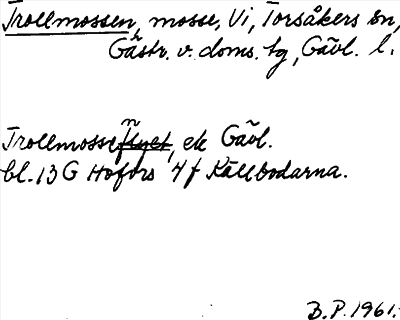 Trollmossen, mosse, Vi, Torsåkers sn,
Gästr. v. doms. tg, Gävl. l.
Trollmossen, ek Gävl.
bl. 13 G Hofors 4 f Källbodarna.
B.P. 1961.